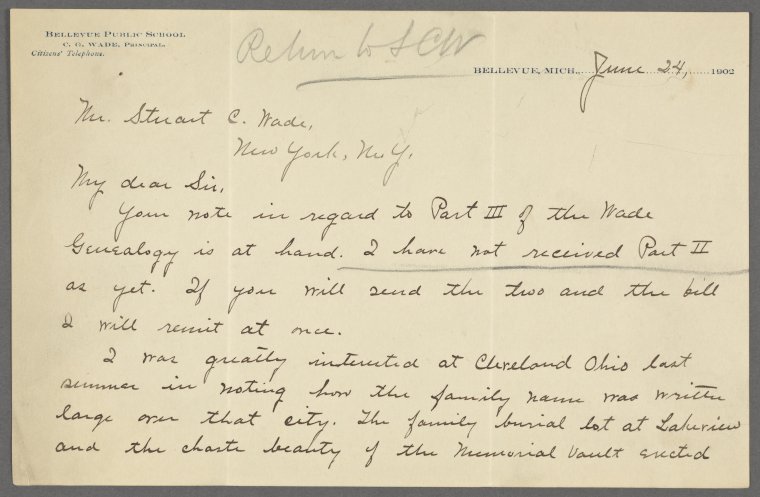 BELLEVUE PUBLIC SCHOOL
C. G. WADE, PRINCIPAL.
Citizens' Telephone.
Return to SCW
BELLEVUE, MICH., June 24, 1902
Mr. Stuart C. Wade,
New York, N.Y.
My dear Sir,
Your note in regard to Part III of the Wade
Genealogy is at hand. I have not received Part II
as yet. If you will send the two and the bill
I will remit at once.
I was greatly interested at Cleveland Ohio last
summer in noting how the family name was written
large over that city. The family burial lot at Lakeview
and the chaste beauty of the Memorial Vault erected